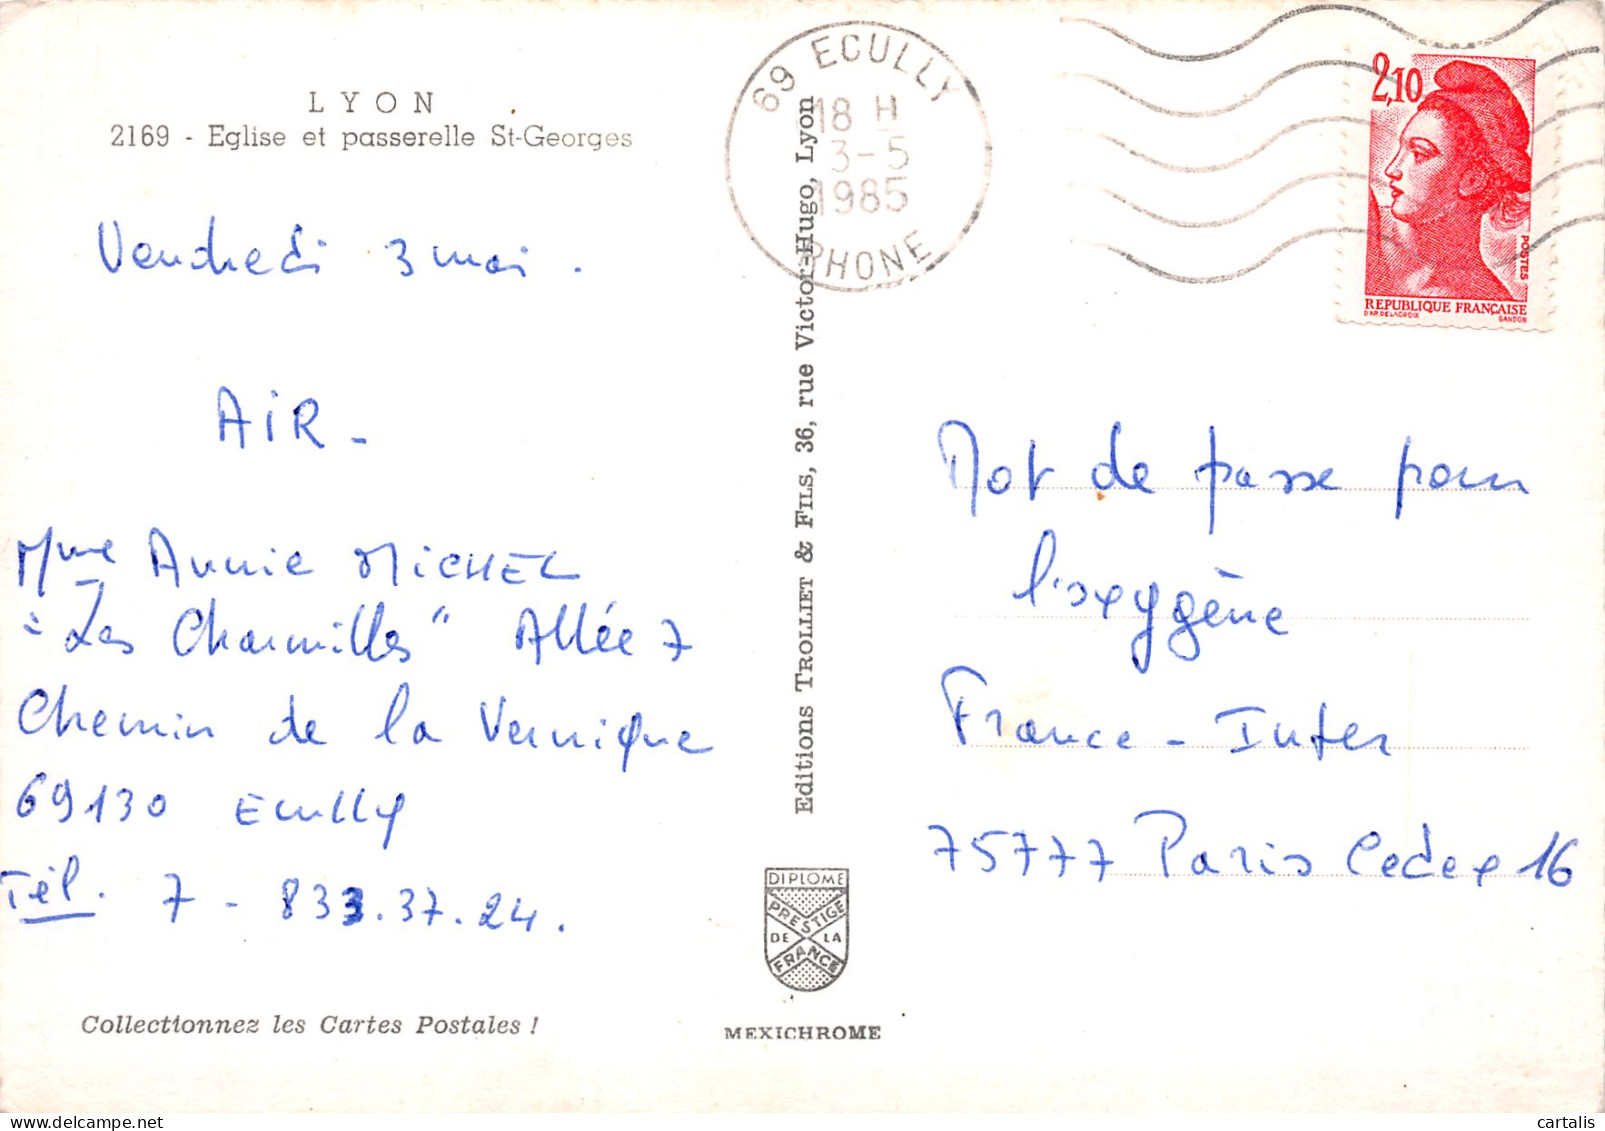 LYON
2169 - Eglise et passerelle St-Georges
Vendredi 3 mai.
AIR -
Mme Annie MICHEL
"Les Charmilles" Allée 7
Chemin de la Vernique
69130 Ecully
Tél. 7 - 833.37.24.
Collectionnez les Cartes Postales !
Editions TROLLIET & FILS, 36, rue Victor-Hugo, Lyon
DIPLOME
PRESTIGE
DE LA
FRANCE
MEXICHROME
69 ECULLY
18 H
3-5
1985
RHONE
2,10
POSTES
REPUBLIQUE FRANÇAISE
D'AP. DELACROIX GANDON
Mot de passe pour
l'oxygène
France-Inter
75777 Paris Cedex 16
cartalis